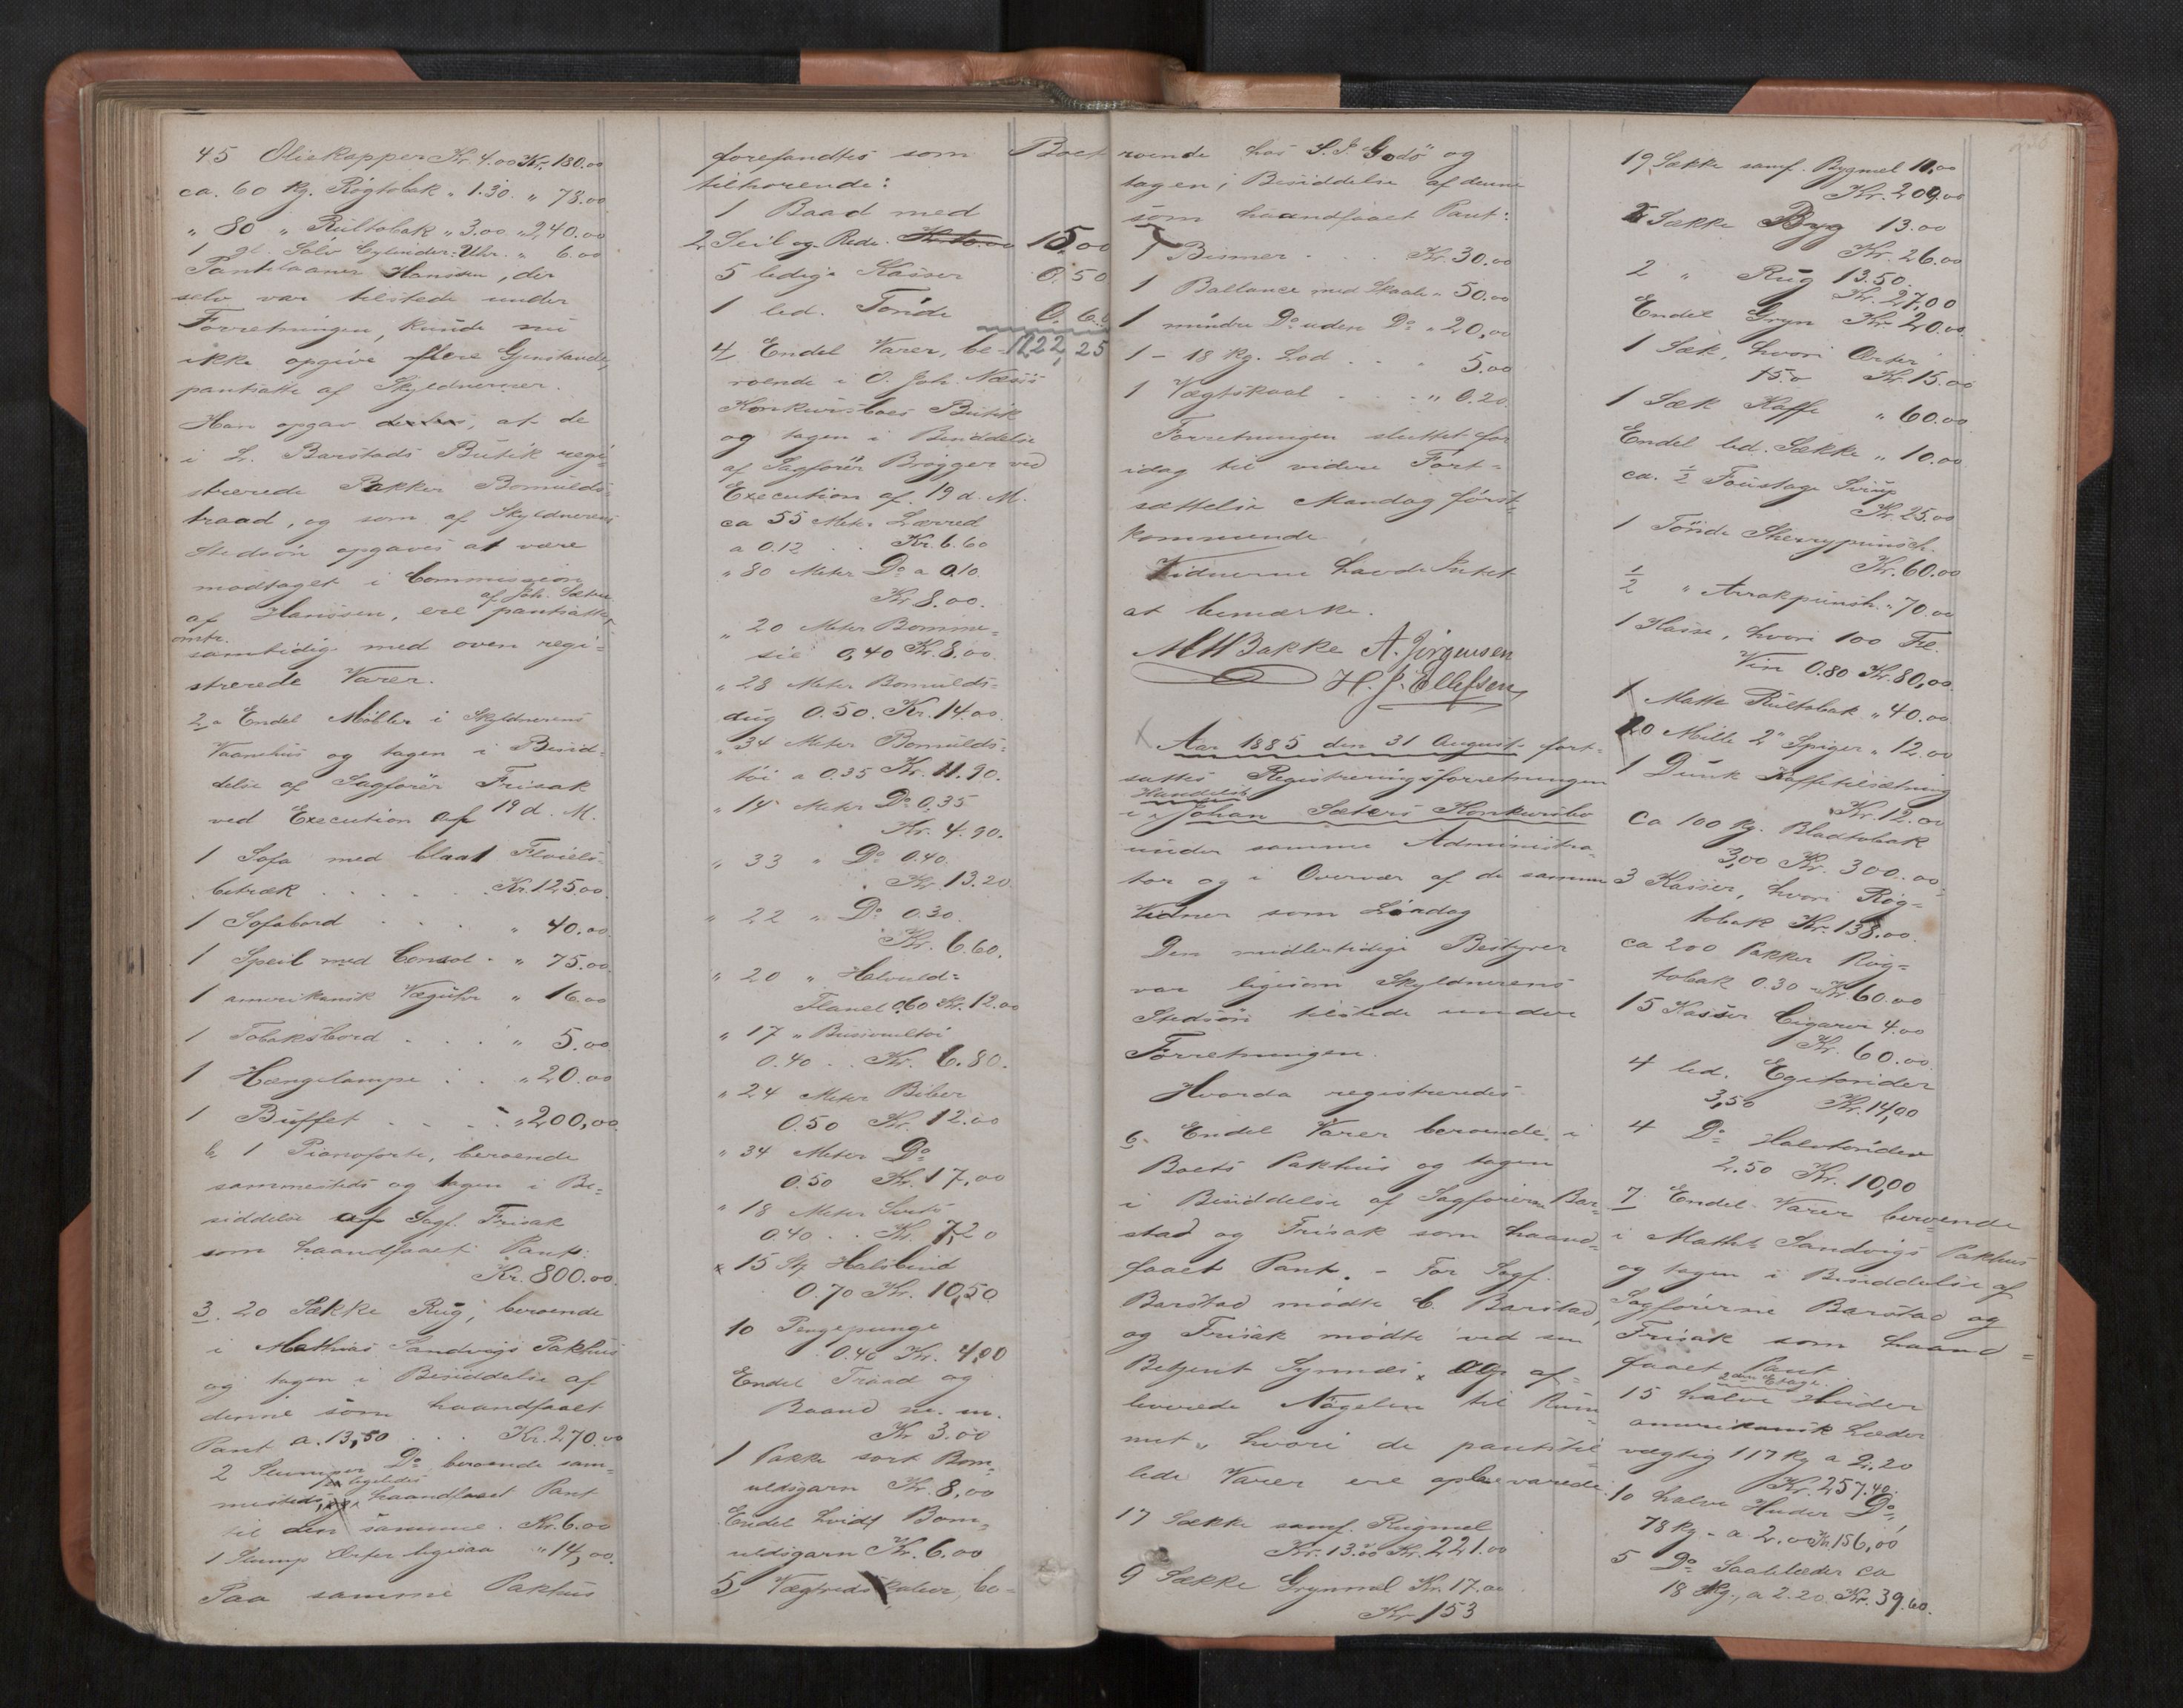 45 Oliekapper Kr. 4.00 Kr. 180.00
ca. 60 kg. Røgtobak " 1.30 " 78.00
" 80 " Rultobak " 3.00 " 240.00
1 gl. Sölv Cylinder-Uhr. " 6.00
Pantelaaner Hanssen, der
selv var tilstede under
Forretningen, kunde nu
ikke opgive flere Gjenstande,
pantsatte af Skyldneren.
Han opgav, at de
i L. Barstads Butik regi-
strerede Pakker Bomulds-
traad, og som af Skyldnerens
Stedsön opgaves at være
modtaget i Commission
af Joh. Sæter
af Hanssen, ere pantsatte
omtr.
samtidig med oven regi-
strerede Varer.
2 a Endel Møbler i Skyldnerens
Vaanehus og tagen i Besid-
delse af Sagförer Frisak
ved Execution af 19 d. M.
1 Sofa med blaat Flöiels-
betræk . . . . . Kr. 125.00
1 Sofabord . . . " 40.00
1 Speil med Consol . " 75.00
1 amerikansk Væguhr " 16.00
1 Tobaksbord . . . " 5.00
1 Hængelampe . . " 20.00
1 Büffet . . . . " 200,00
b 1 Pianoforte, beroende
sammesteds og tagen i Be-
siddelse af Sagf. Frisak
som haandfaaet Pant:
Kr. 800.00
3. 20 Sække Rug, beroende
i Mathias Sandvigs Pakhus
og tagen i Besiddelse af
denne som haandfaaet
Pant a. 13,50 . . . Kr. 270.00
2 Slumper Do beroende sam-
ligeledes
mesteds, haandfaaet Pant
til den samme. Kr. 6.00
1 Slump Erter ligesaa " 14,00
Paa samme Pakhus
forefandtes som Boet
tilhorende:
1 Baad med
2 Seil og Rede. 15,00
5 ledige Kasser 0.50
1 led. Tönde 0.60
4. Endel Varer, be- 1222,25
roende i O. Joh. Næss's
Konkursboes Butik
og tagen i Besiddelse
af Sagförer Brøgger ved
Execution af 19 d. M.
ca 55 Meter Lærred
a 0.12 . . Kr. 6.60
" 80 Meter Do a 0.10
Kr. 8.00.
" 20 Meter Bomme-
sie 0,40 Kr. 8.00.
" 28 Meter Bomulds-
dug 0.50. Kr. 14.00.
" 34 Meter Bomulds-
töi a 0.35 Kr. 11.90.
" 14 Meter Do 0.35
Kr. 4.90.
" 33 " Do 0.40.
Kr. 13.20.
" 22 " Do 0.30.
Kr. 6.60.
" 20 " Halvuld-
Flanel 0.60 Kr. 12.00
" 17 " Buserultöi
0.40 . . Kr. 6.80.
" 24 Meter Biber
0.50 Kr. 12.00
" 34 Meter Do
0.50 Kr. 17,00
" 18 Meter Sirts
0.40 . . Kr. 7,20
x 15 St. Halsbind
0.70 Kr. 10,50
10 Pengepunge
0.40 Kr. 4,00
Endel Traad og
Baand m. m.
Kr. 3.00
1 Pakke sort Bom-
uldsgarn Kr. 8,00
Endel hvidt Bom-
uldsgarn Kr. 6.00
5, Vægtredskaber, be-
roende hos S. J. Godö og
tagen i Besiddelse af denne
som haandfaaet Pant:
1 Bismer . . . Kr. 30.00
1 Ballance med Skaaler " 50.00
1 mindre Do uden Do " 20,00
1 - 18 kg. Lod . . . 5.00
1 Vægtskaal . . . " 0.20
Forretningen sluttet for
idag til videre Fort-
sættelse Mandag först-
kommende.
Vidnerne havde Intet
at bemærke.
MHBakke A. Jörgensen
H. J. Ellefsen
Aar 1885 den 31 August fort-
sattes Registreringsforretningen
Handelsb.
i Johan Sæters Konkursbo
under samme Administra-
tor og i Overvær af de samme
Vidner som Löndag
Den midlertidige Bestyrer
var ligesom Skyldnerens
Stedsön tilstede under
Forretningen.
Hvorda registreredes
6. Endel Varer beroende i
Boets Pakhus og tagen
i Besiddelse af Sagförerne Bar-
stad og Frisak som haand-
faaet Pant. - For Sagf.
Barstad mödte C. Barstad,
og Frisak mödte ved sin
Betjent Synnes, og af-
leverede Nögelen til Rum-
met, hvori de pantstil-
lede Varer ere opbevarede.
17 Sække samf. Rugmel
Kr. 13.00 Kr. 221.00
9 Sække Grynmel Kr. 17.00
Kr. 153
19 Sække samf. Bygmel 11,00
Kr. 209.00
2 Sække Byg 13.00
Kr. 26.00
2 " Rug 13.50.
Kr. 27,00
Endel Gryn Kr. 20.00
1 Sæk, hvori Erter
Kr. 15.00
1 Sæk Kaffe " 60.00
Endel led. Sække " 10.00
ca. 1/2 Foustage Sirup
Kr. 25.00
1 Tönde Sherrypunsch.
Kr. 60.00
1/2 " Arrakpunsh. " 70.00
1 Kasse, hvori 100 Fl.
Vin 0.80 Kr. 80,00
1 Matte Rultobak " 40.00
20 Mille 2" Spiger " 12.00
1 Dunk Kaffetilsætning
Kr. 12.00
Ca 100 Kg. Bladtobak
3,00 Kr. 300.00
3 Kasser, hvori Røg-
tobak Kr. 138.00
ca 200 Pakker Røg-
tobak 0.30 - Kr. 60.00
15 Kasser Cigarer 4.00
Kr. 60.00
4 led. Egetönder
3,50 Kr. 14,00
4 Do Halvtönder
2.50 Kr. 10,00
7. Endel Varer beroende
i Maths. Sandvigs Pakhus
og tagen i Besiddelse af
Sagförerne Barstad og
Frisak som haand-
faaet Pant.
2den Etage.
15 halve Huder
amerikansk Læder
vægtig 117 kg a 2.20
Kr. 257.40.
10 halve Huder Do,
78 kg - a 2.00 Kr. 156,00
5 Do Saalelæder ca
18 Kg., a 2.20. Kr. 39.60.